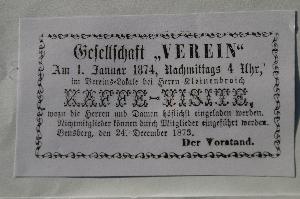 Gesellschaft „VEREIN“
Am 1. Januar 1874, Nachmittags 4 Uhr,
im Vereins-Lokale bei Herrn Kleinenbroich
KAFFE-VISITE,
wozu die Herren und Damen höflichst eingeladen werden.
Nichtmitglieder können durch Mitglieder eingeführt werden.
Bensberg, den 24. December 1873.
Der Vorstand.